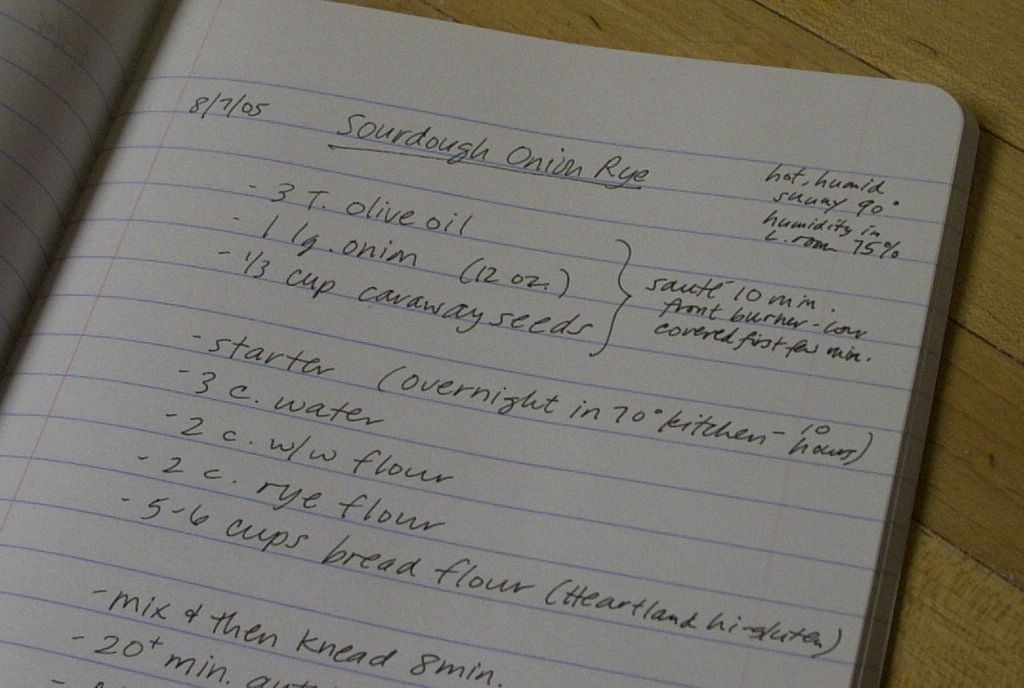 8/7/05
Sourdough Onion Rye
hot, humid
sunny 90°
humidity in
L. room 75%
- 3 T. olive oil
- 1 lg. onion (12 oz.)
- 1/3 cup caraway seeds
sauté 10 min.
front burner - low
covered first few min.
- starter (overnight in 70° kitchen - 10 hours)
- 3 c. water
- 2 c. w/w flour
- 2 c. rye flour
- 5-6 cups bread flour (Heartland hi-gluten)
- mix & then knead 8 min.
- 20+ min.